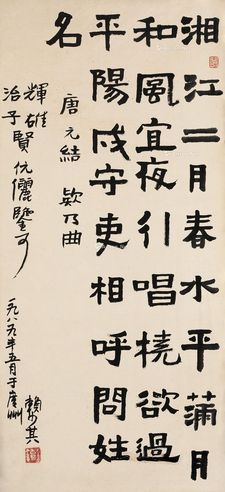 湘江二月春水平蒲月
和風宜夜引唱桡欲過
平陽戍守吏相呼問姓
名
唐元結欸乃曲
輝雄
治子賢伉儷鑒可
一九八九年五月于廣州
賴少其